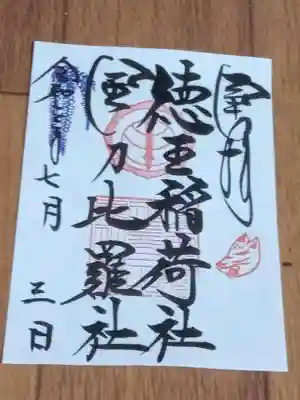 奉拝
徳王稲荷社
金刀比羅社
令和 七月 三日